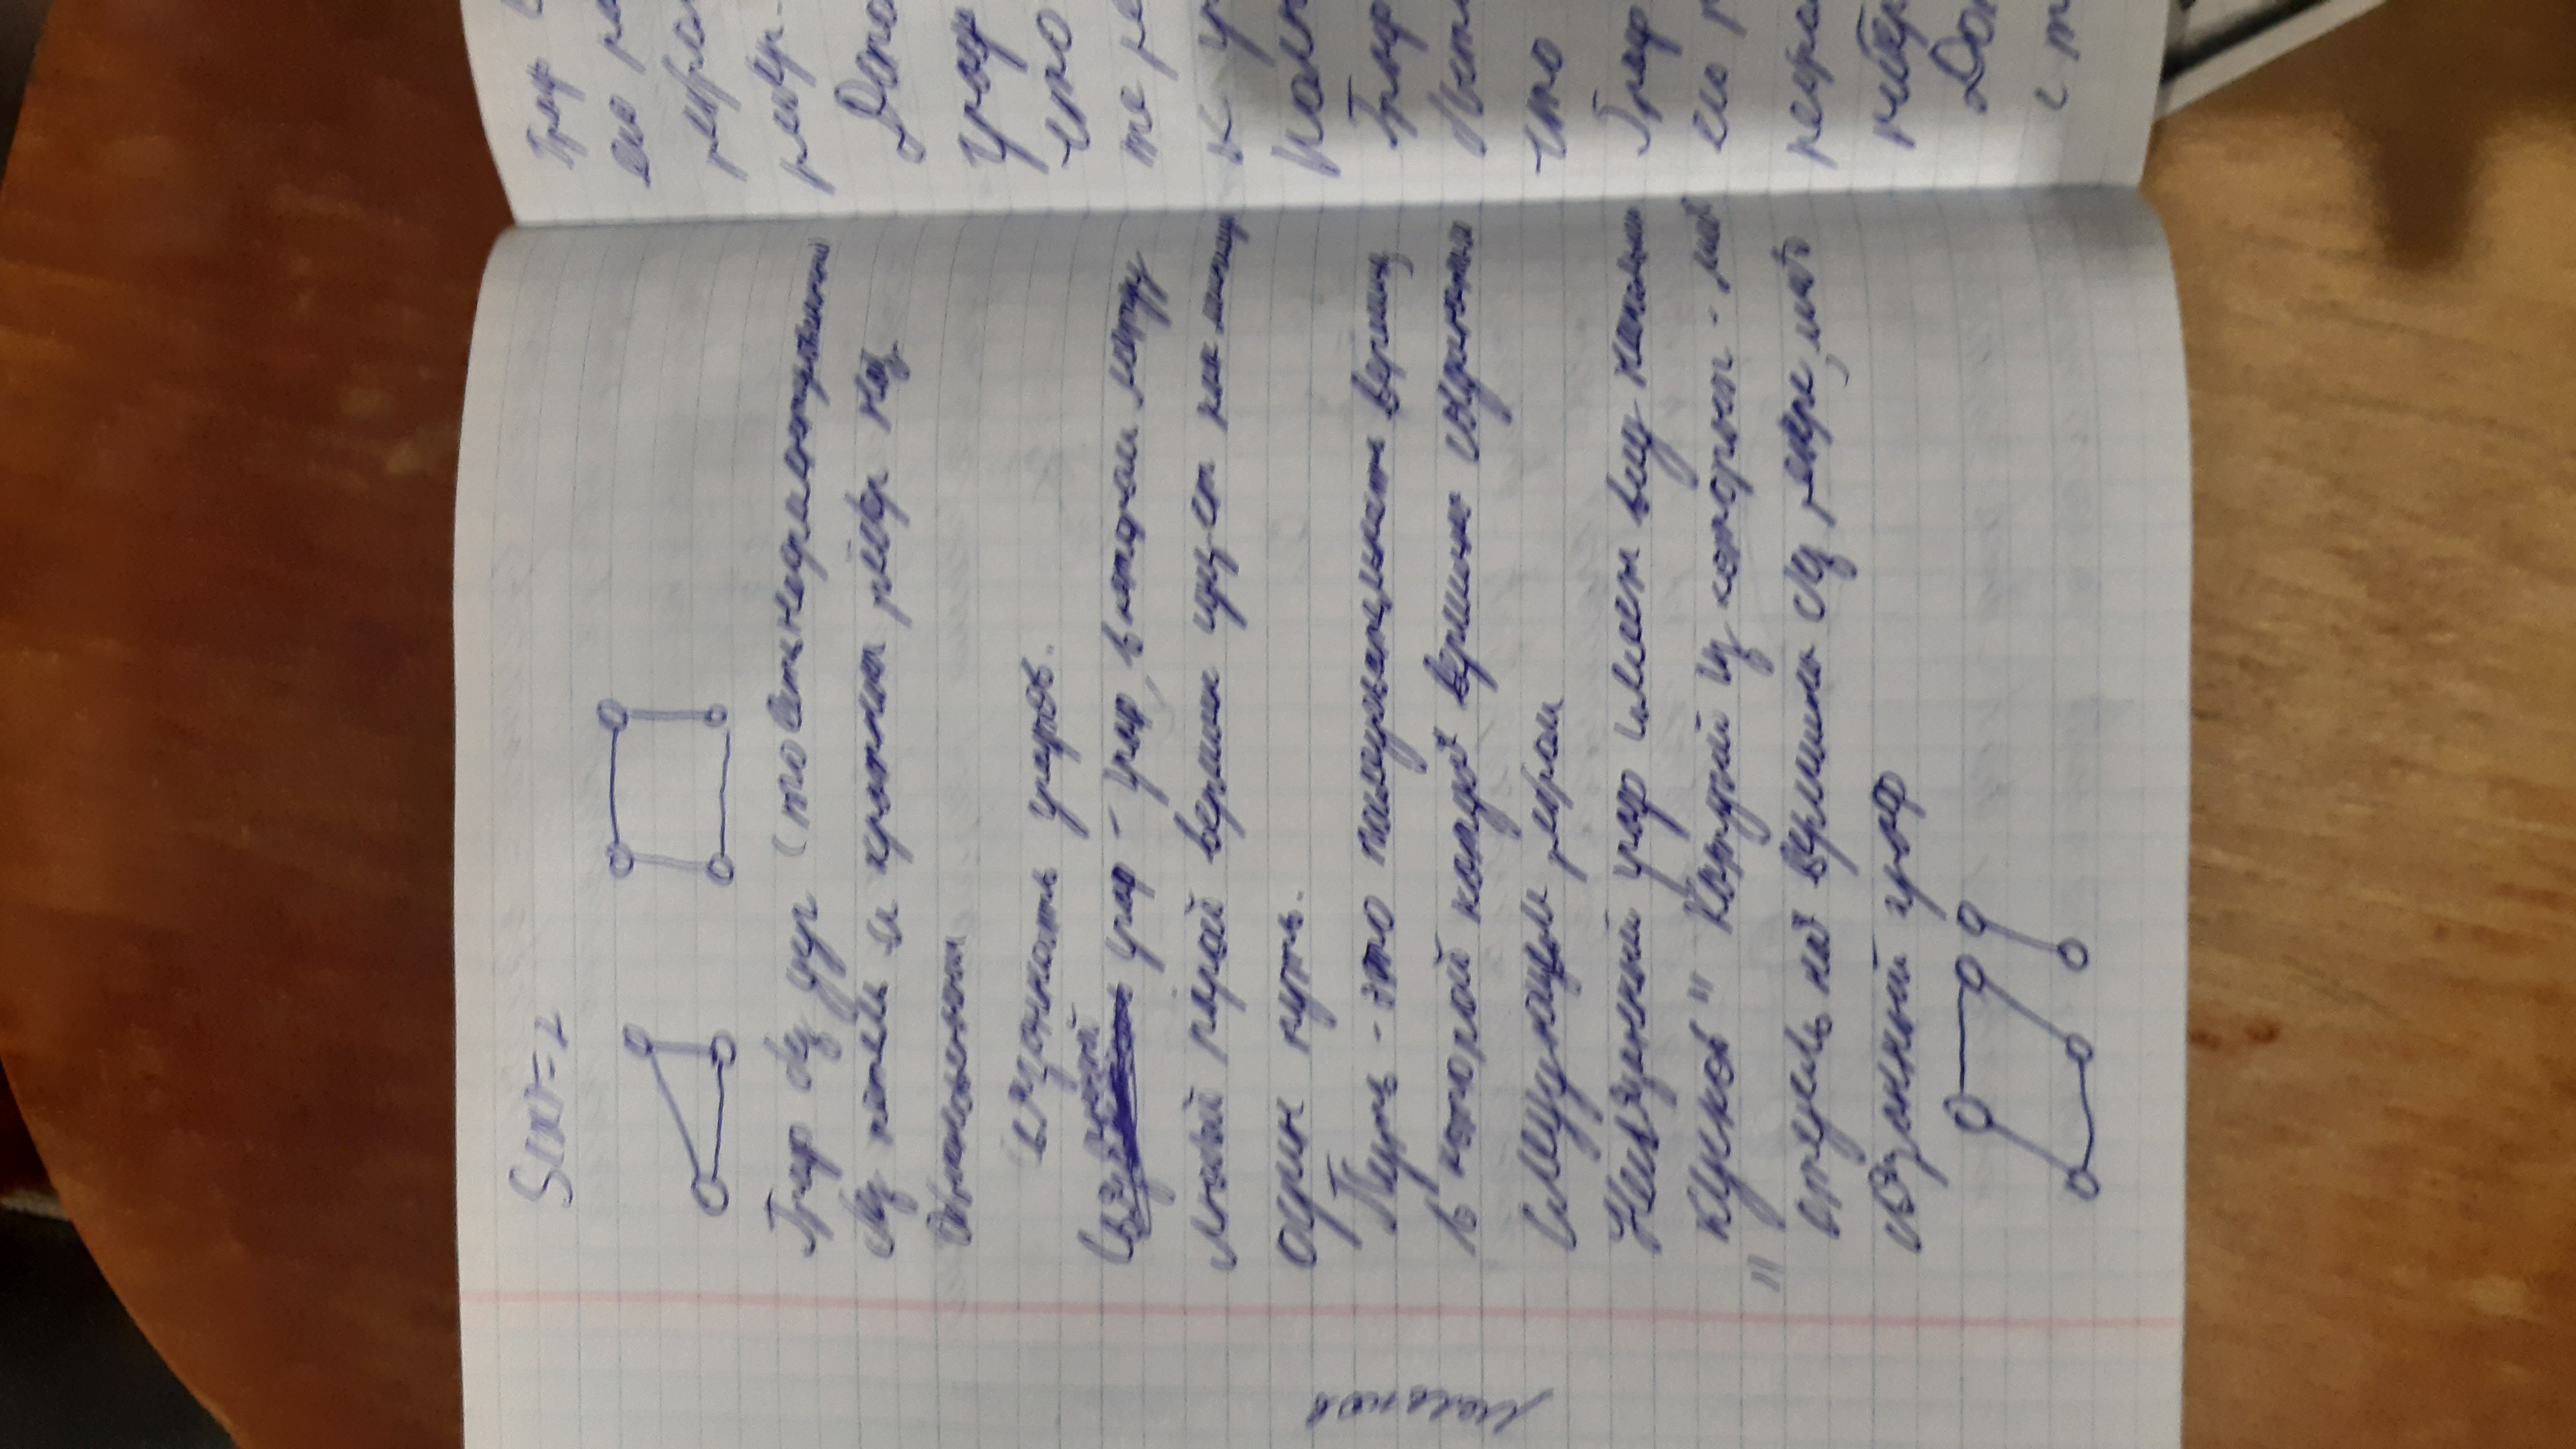 S(x)=2
Граф без дуг (то есть неориентированный
без петель и кратных рёбер наз.
Обыкновенным
Связанность графов.
Связанный граф - граф, в котором между
любой парой вершин сущ-ет как минимум
один путь.
Путь - это последовательность вершин,
в которой каждая вершина соединяется
следующем ребром
Несвязанный граф имеет вид нескольких
"кусков" Каждый из которых - либо
отдельная вершина без ребер, либо
связанный граф
Граф
его
ребром
ребер.
граф
что
к
Граф
что
Граф
его
с